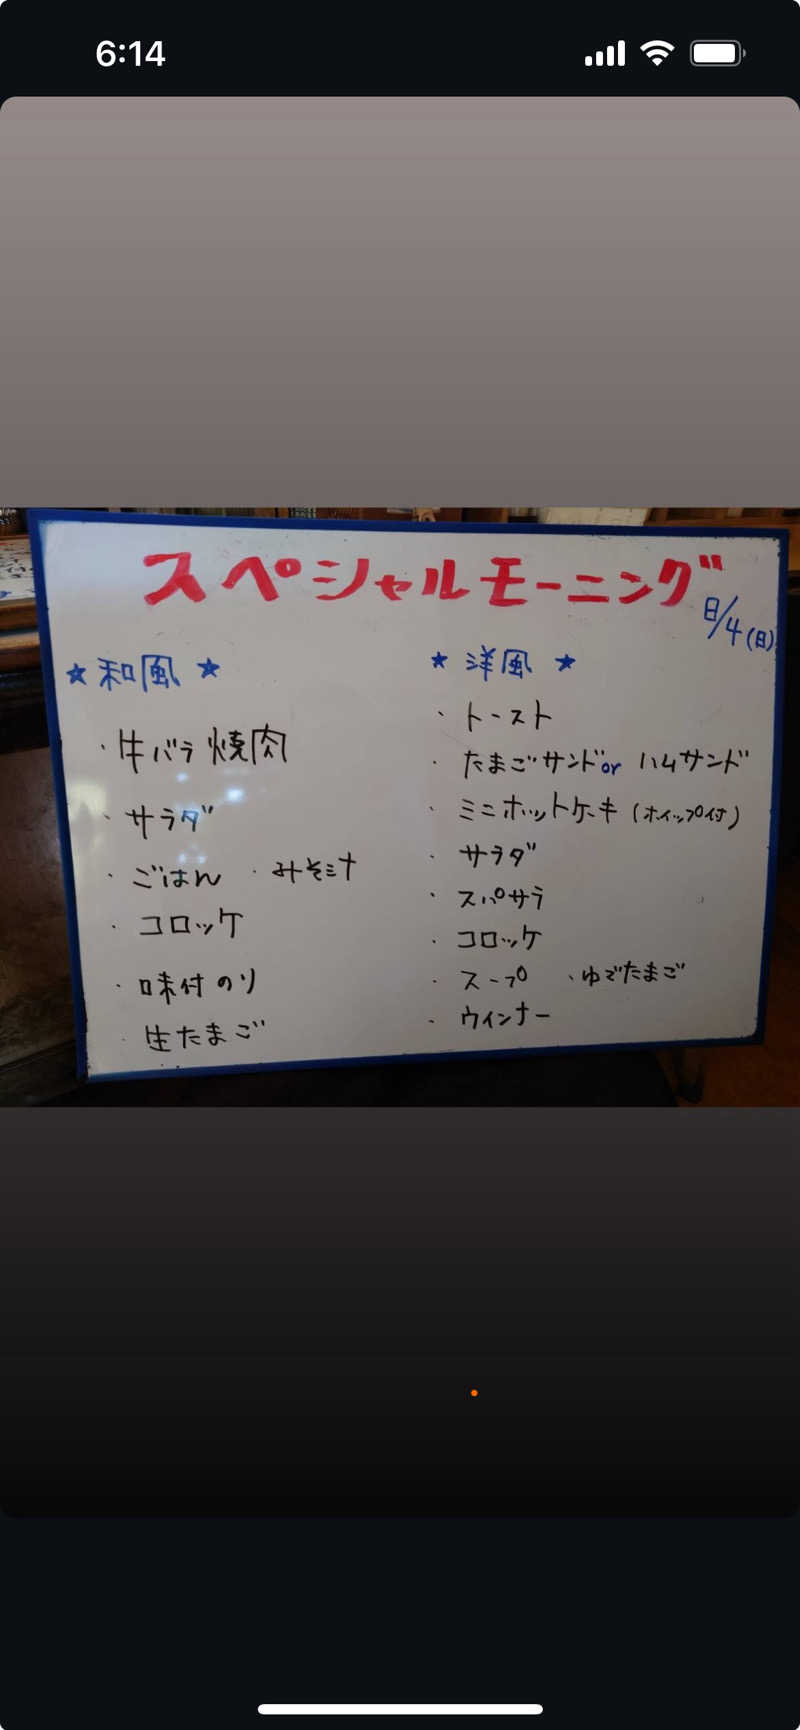 6:14
スペシャルモーニング
8/4(日)
★ 和風 ★
・牛バラ焼肉
・サラダ
・ごはん ・みそ汁
・コロッケ
・味付のり
・生たまご
★ 洋風 ★
・トースト
・たまごサンドor ハムサンド
・ミニホットケーキ(ホイップ付)
・サラダ
・スパサラ
・コロッケ
・スープ ・ゆでたまご
・ウィンナー